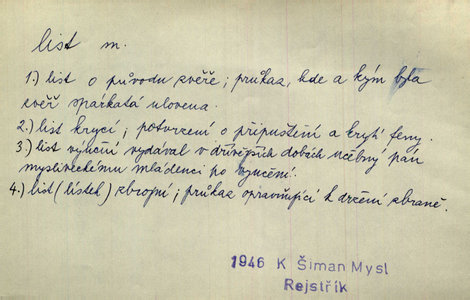 list m.
1.) list o původu zvěře; průkaz, kde a kým byla
zvěř spárkatá ulovena.
2.) list krycí; potvrzení o připuštění a krytí feny.
3.) list výuční vydával v dřívějších dobách učebný pán
mysliveckému mládenci po vyučení.
4.) list (lístek) zbrojní; průkaz opravňující k držení zbraně.
1946 K Šiman Mysl
Rejstřík